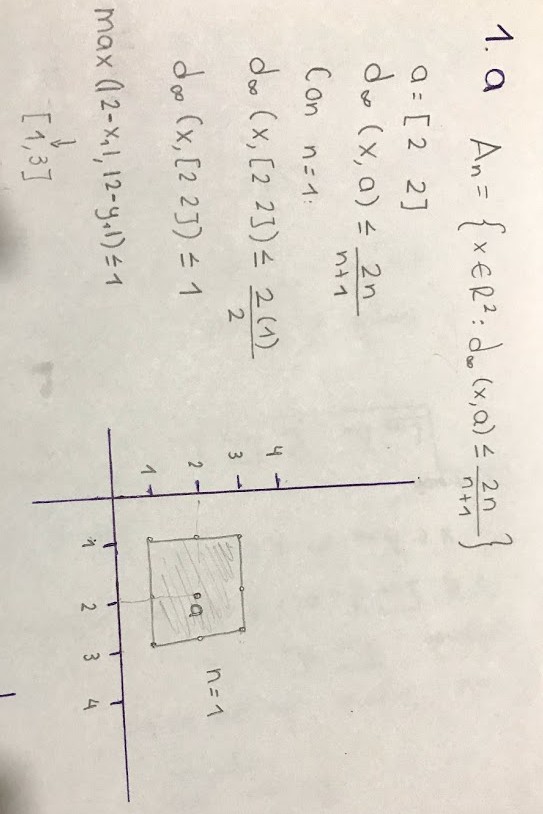 1. a Aₙ = { x ∈ R² : d∞ (x,a) ≤ 2n/n+1 }
a = [2 2]
d∞ (x, a) ≤ 2n/n+1
Con n=1:
d∞ (x, [2 2]) ≤ 2(1)/2
d∞ (x, [2 2]) ≤ 1
max (|2-x₁|, |2-y₁|) ≤ 1
↓
[1,3]
4
3
2
1
a
n=1
1 2 3 4